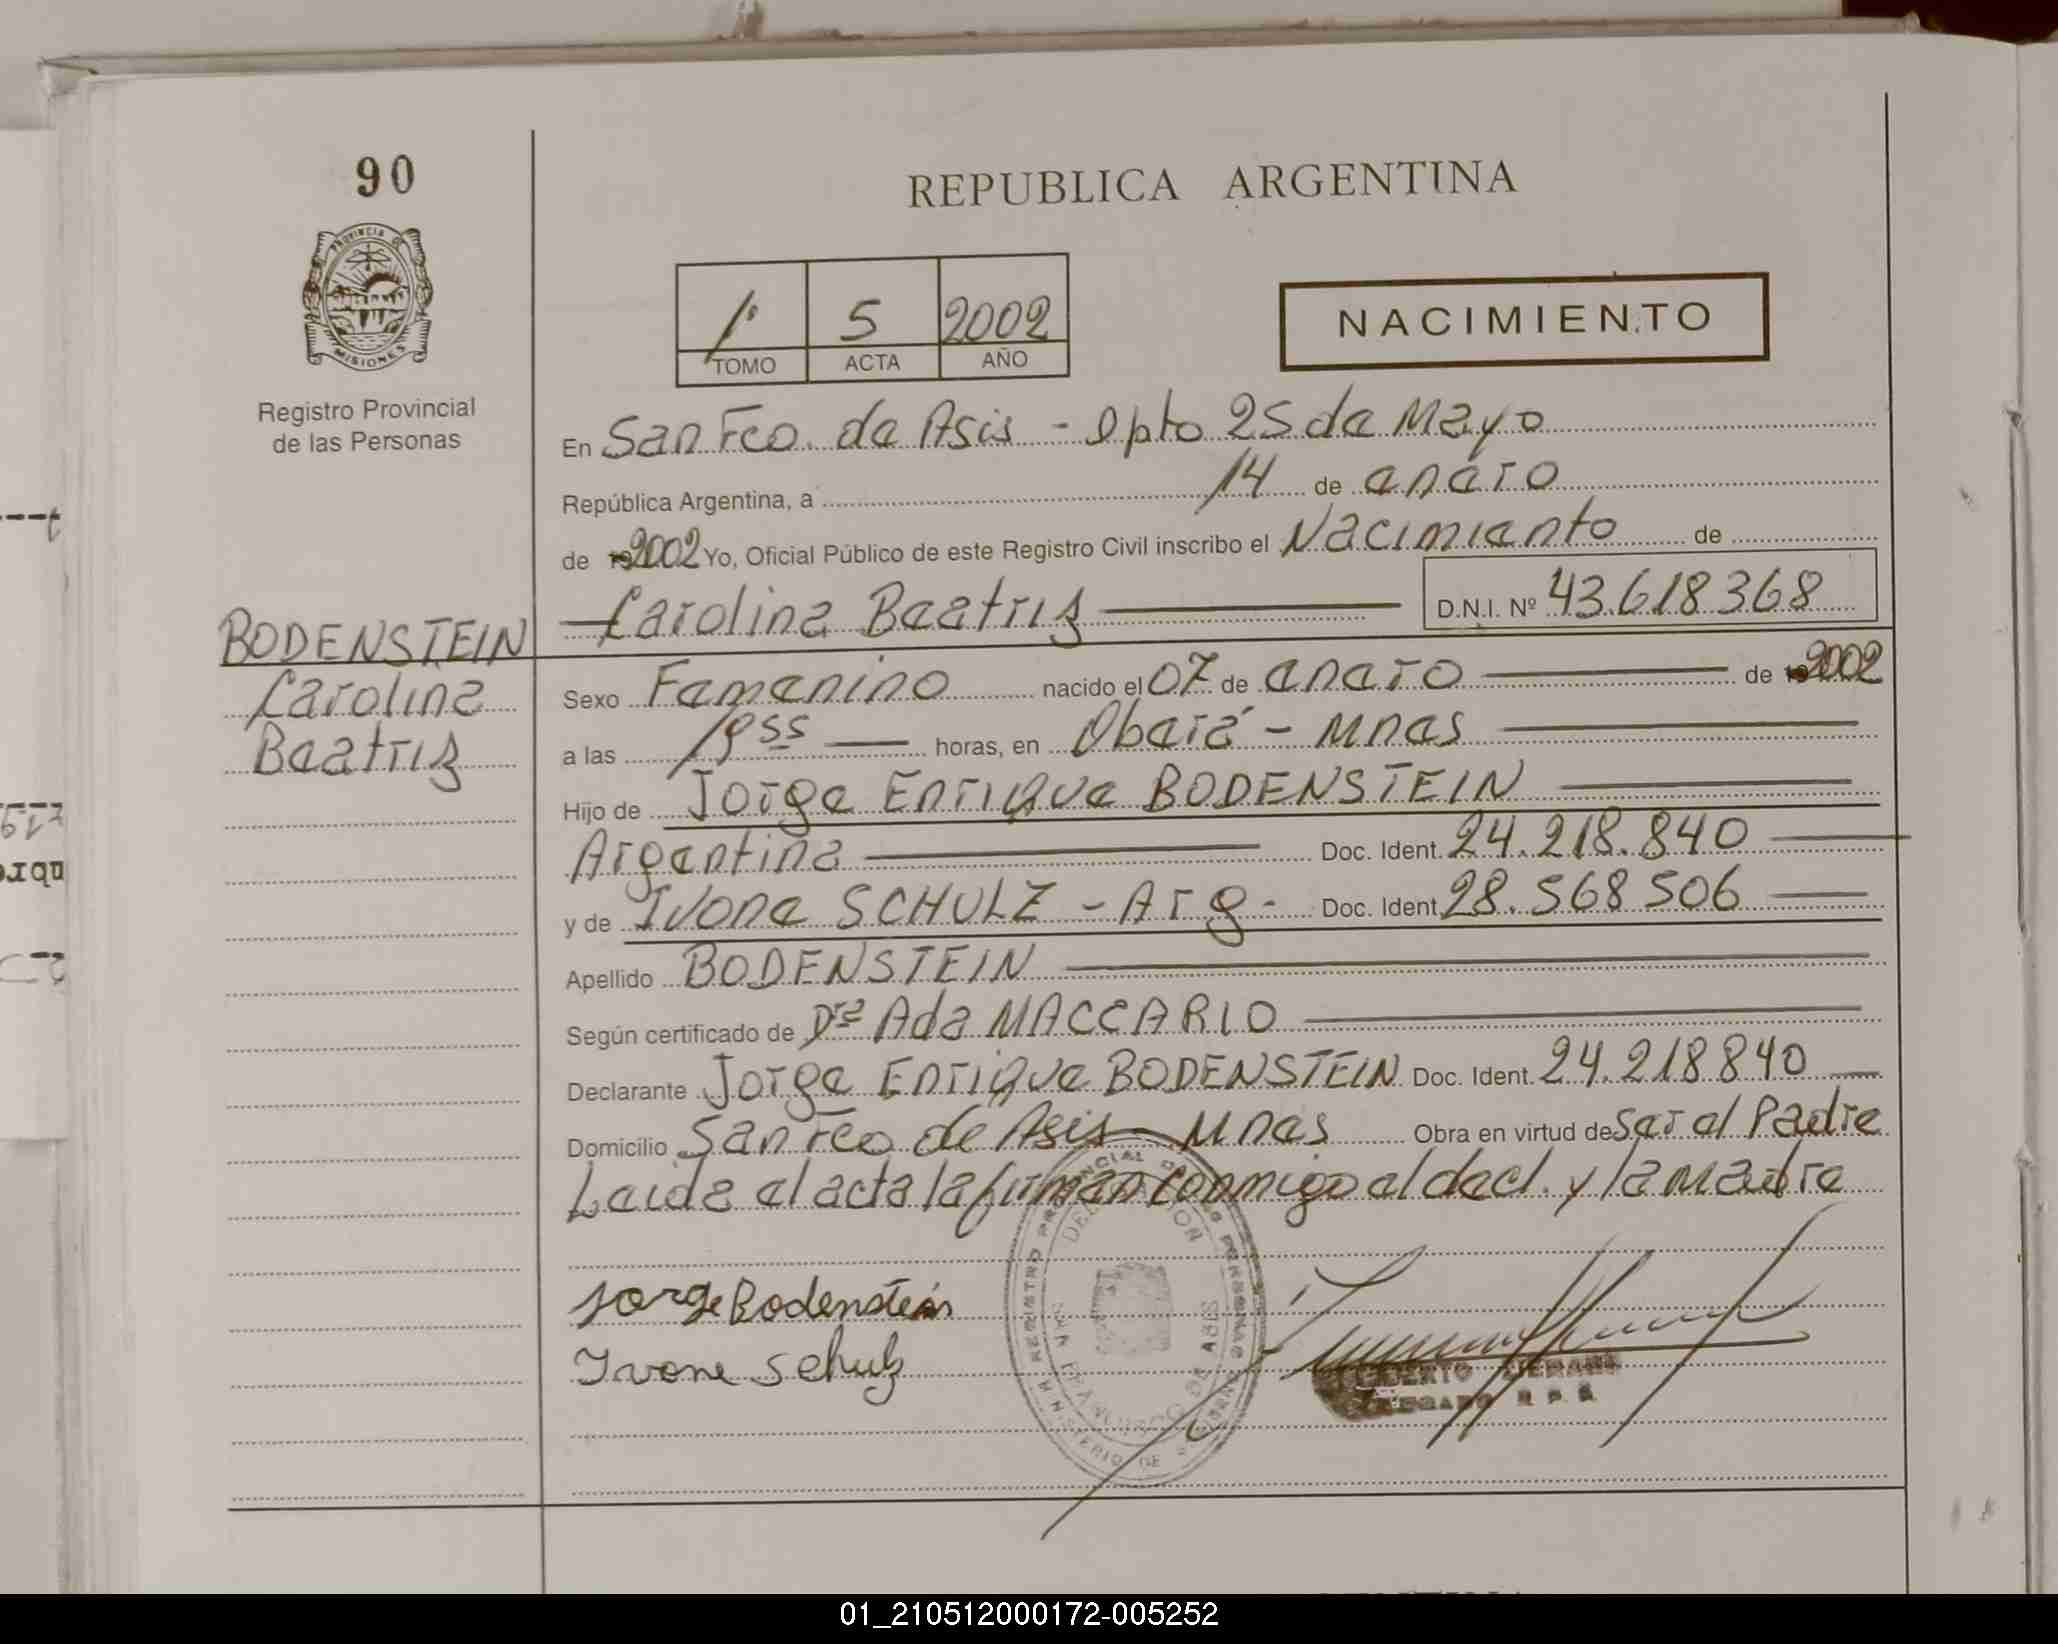 90
REPUBLICA ARGENTINA
PROVINCIA DE
MISIONES
1º 5 2002
TOMO ACTA AÑO
NACIMIENTO
Registro Provincial
de las Personas
En San Fco. de Asis - Dpto 25 de Mayo
República Argentina, a 14 de enero
de 192002 Yo, Oficial Público de este Registro Civil inscribo el Nacimiento de
Carolina Beatriz D.N.I. Nº 43.618368
BODENSTEIN
Carolina
Beatriz
Sexo Femenino nacido el 07 de enero de 192002
a las 19 55 horas, en Oberá - Mnes
Hijo de Jorge Enrique BODENSTEIN
Argentina Doc. Ident. 24.218.840
y de Ivone SCHULZ - Arg - Doc. Ident. 28.568506
Apellido BODENSTEIN
Según certificado de Dra Ada MACCARIO
Declarante Jorge Enrique BODENSTEIN Doc. Ident. 24.218840
Domicilio San Fco de Asis - Mnes Obra en virtud de Ser el Padre
Leida el acta la firman conmigo el decl. y la Madre
Jorge Bodenstein
Ivone Schulz
REGISTRO PROVINCIAL DE LAS PERSONAS
MINISTERIO DE GOBIERNO
DELEGACION
SAN FRANCISCO DE ASIS
R. P. P.
01_210512000172-005252